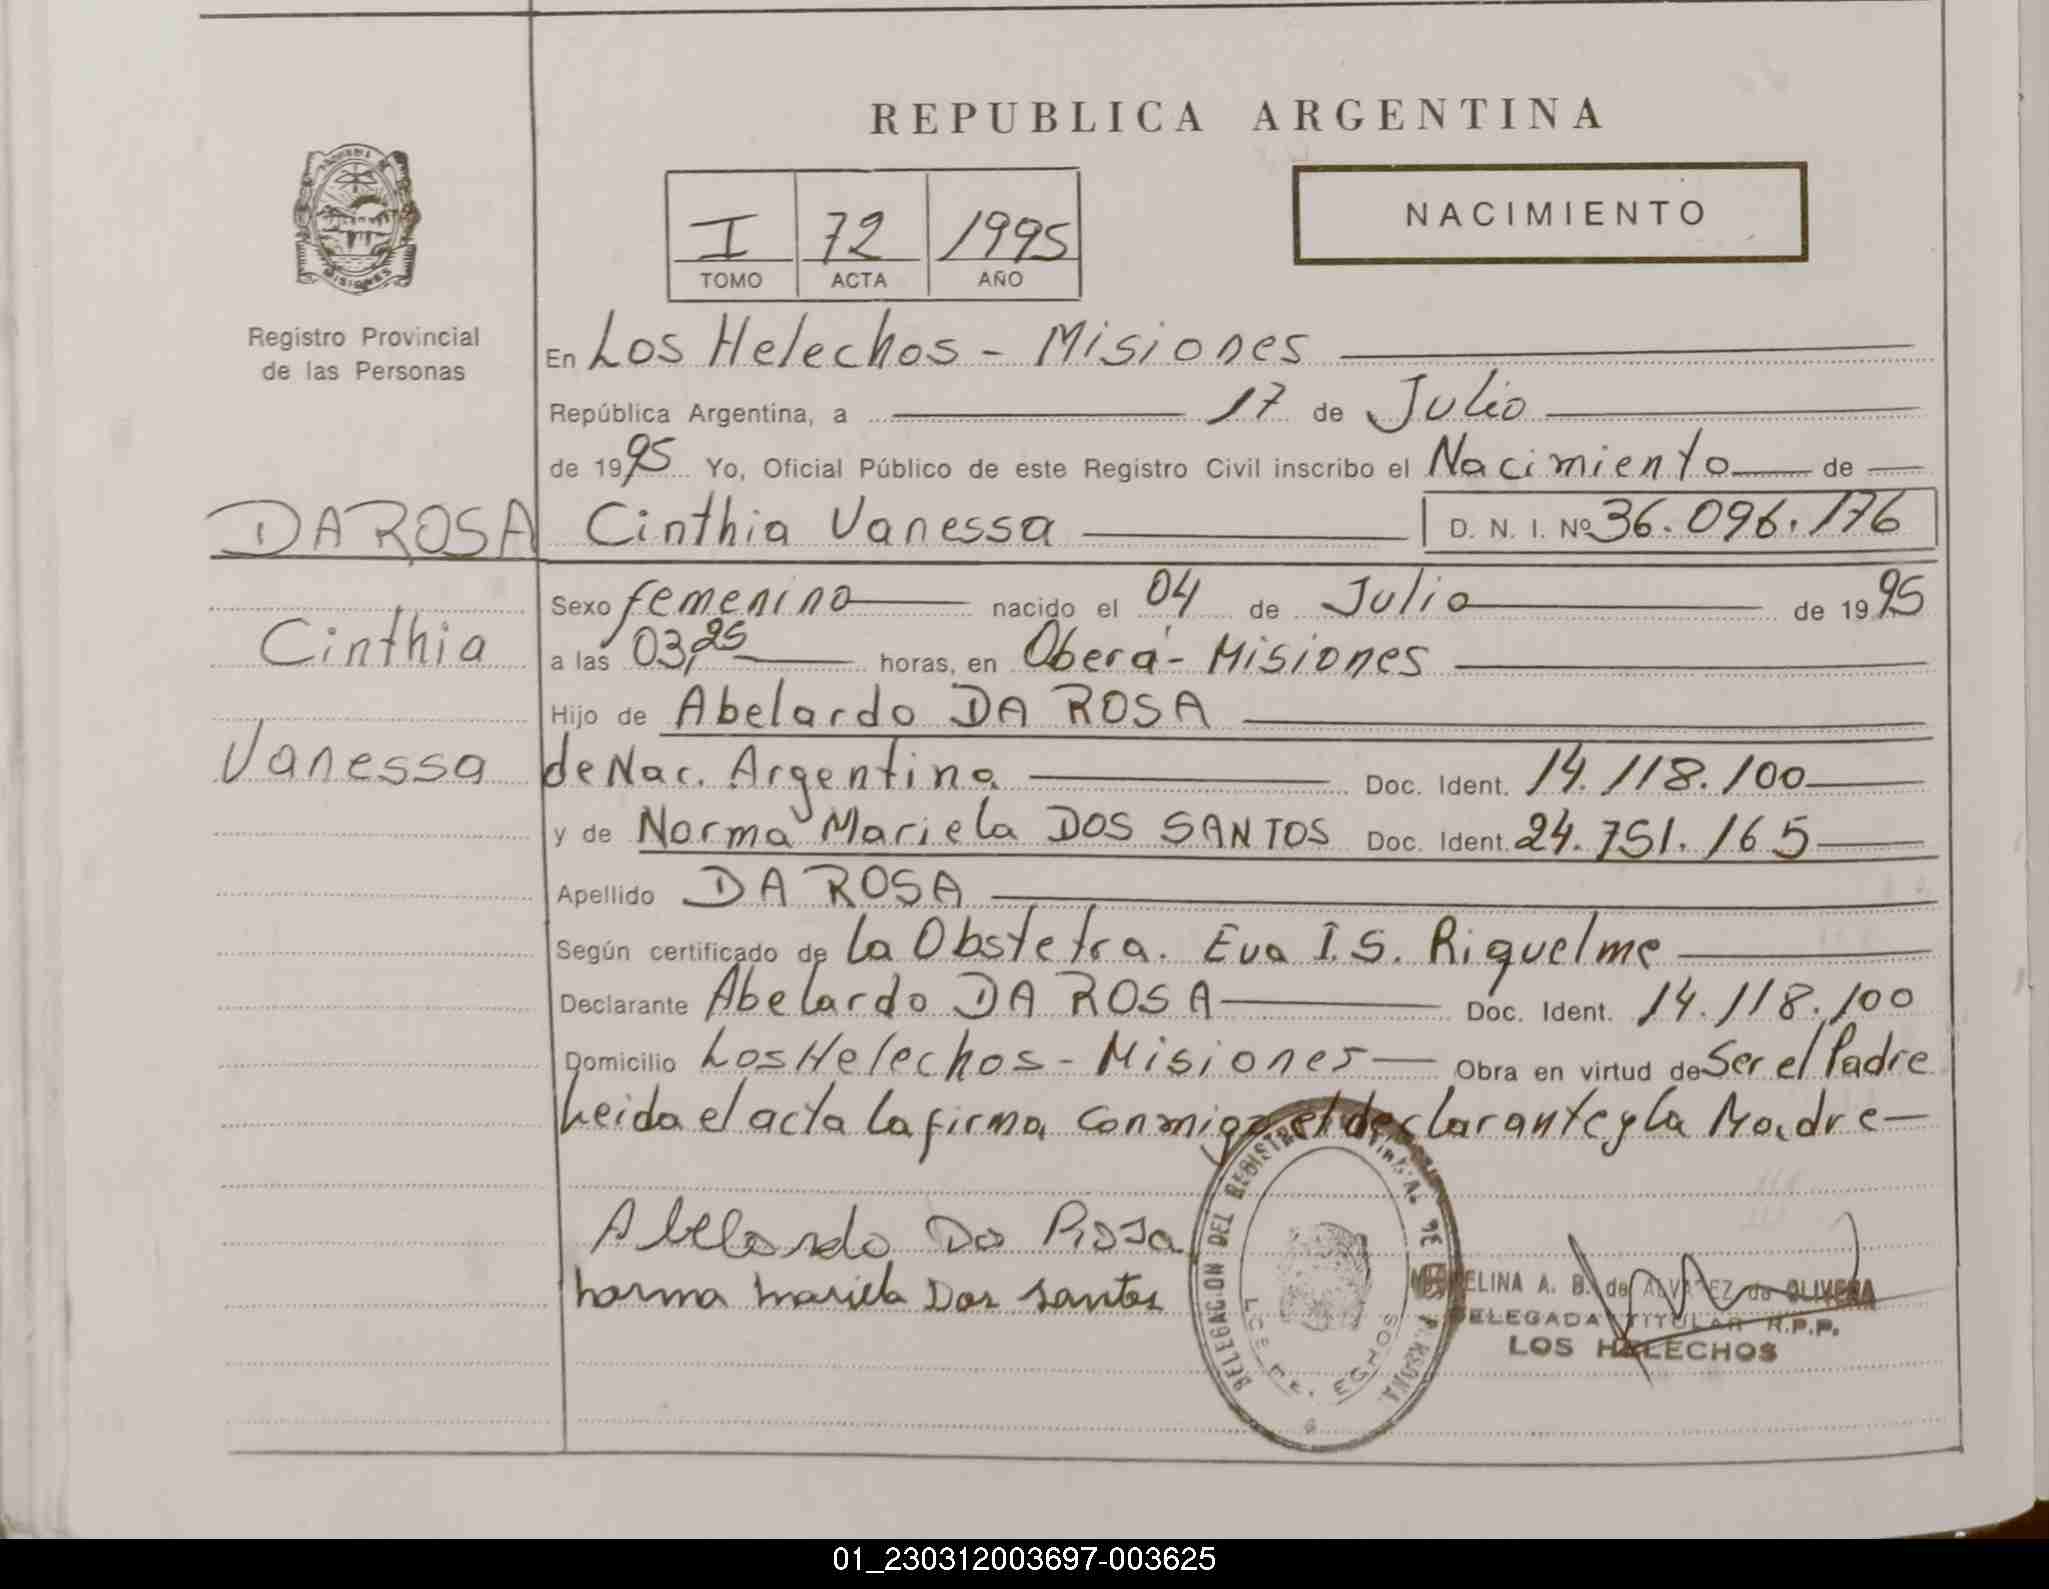 REPUBLICA ARGENTINA
NACIMIENTO
I 72 1995
TOMO ACTA AÑO
MISIONES
Registro Provincial
de las Personas
En Los Helechos - Misiones
República Argentina, a 17 de Julio
de 1995 Yo, Oficial Público de este Registro Civil inscribo el Nacimiento de
DA ROSA Cinthia Vanessa D. N. I. Nº 36.096.176
Sexo femenino nacido el 04 de Julio de 1995
Cinthia
a las 03,25 horas, en Oberá - Misiones
Hijo de Abelardo DA ROSA
Vanessa
de Nac. Argentina Doc. Ident. 14.118.100
y de Norma Mariela DOS SANTOS Doc. Ident. 24.751.165
Apellido DA ROSA
Según certificado de la Obstetra. Eva I.S. Riquelme
Declarante Abelardo DA ROSA Doc. Ident. 14.118.100
Domicilio Los Helechos - Misiones Obra en virtud de Ser el Padre
Leida el acta la firma conmigo el declarante y la Madre
Abelardo Da Rosa
norma mariela Dos santos
DELEGACION DEL REGISTRO
A. B. de ALVAREZ de OLIVERA
DELEGADA TITULAR R.P.P.
LOS HELECHOS
01_230312003697-003625